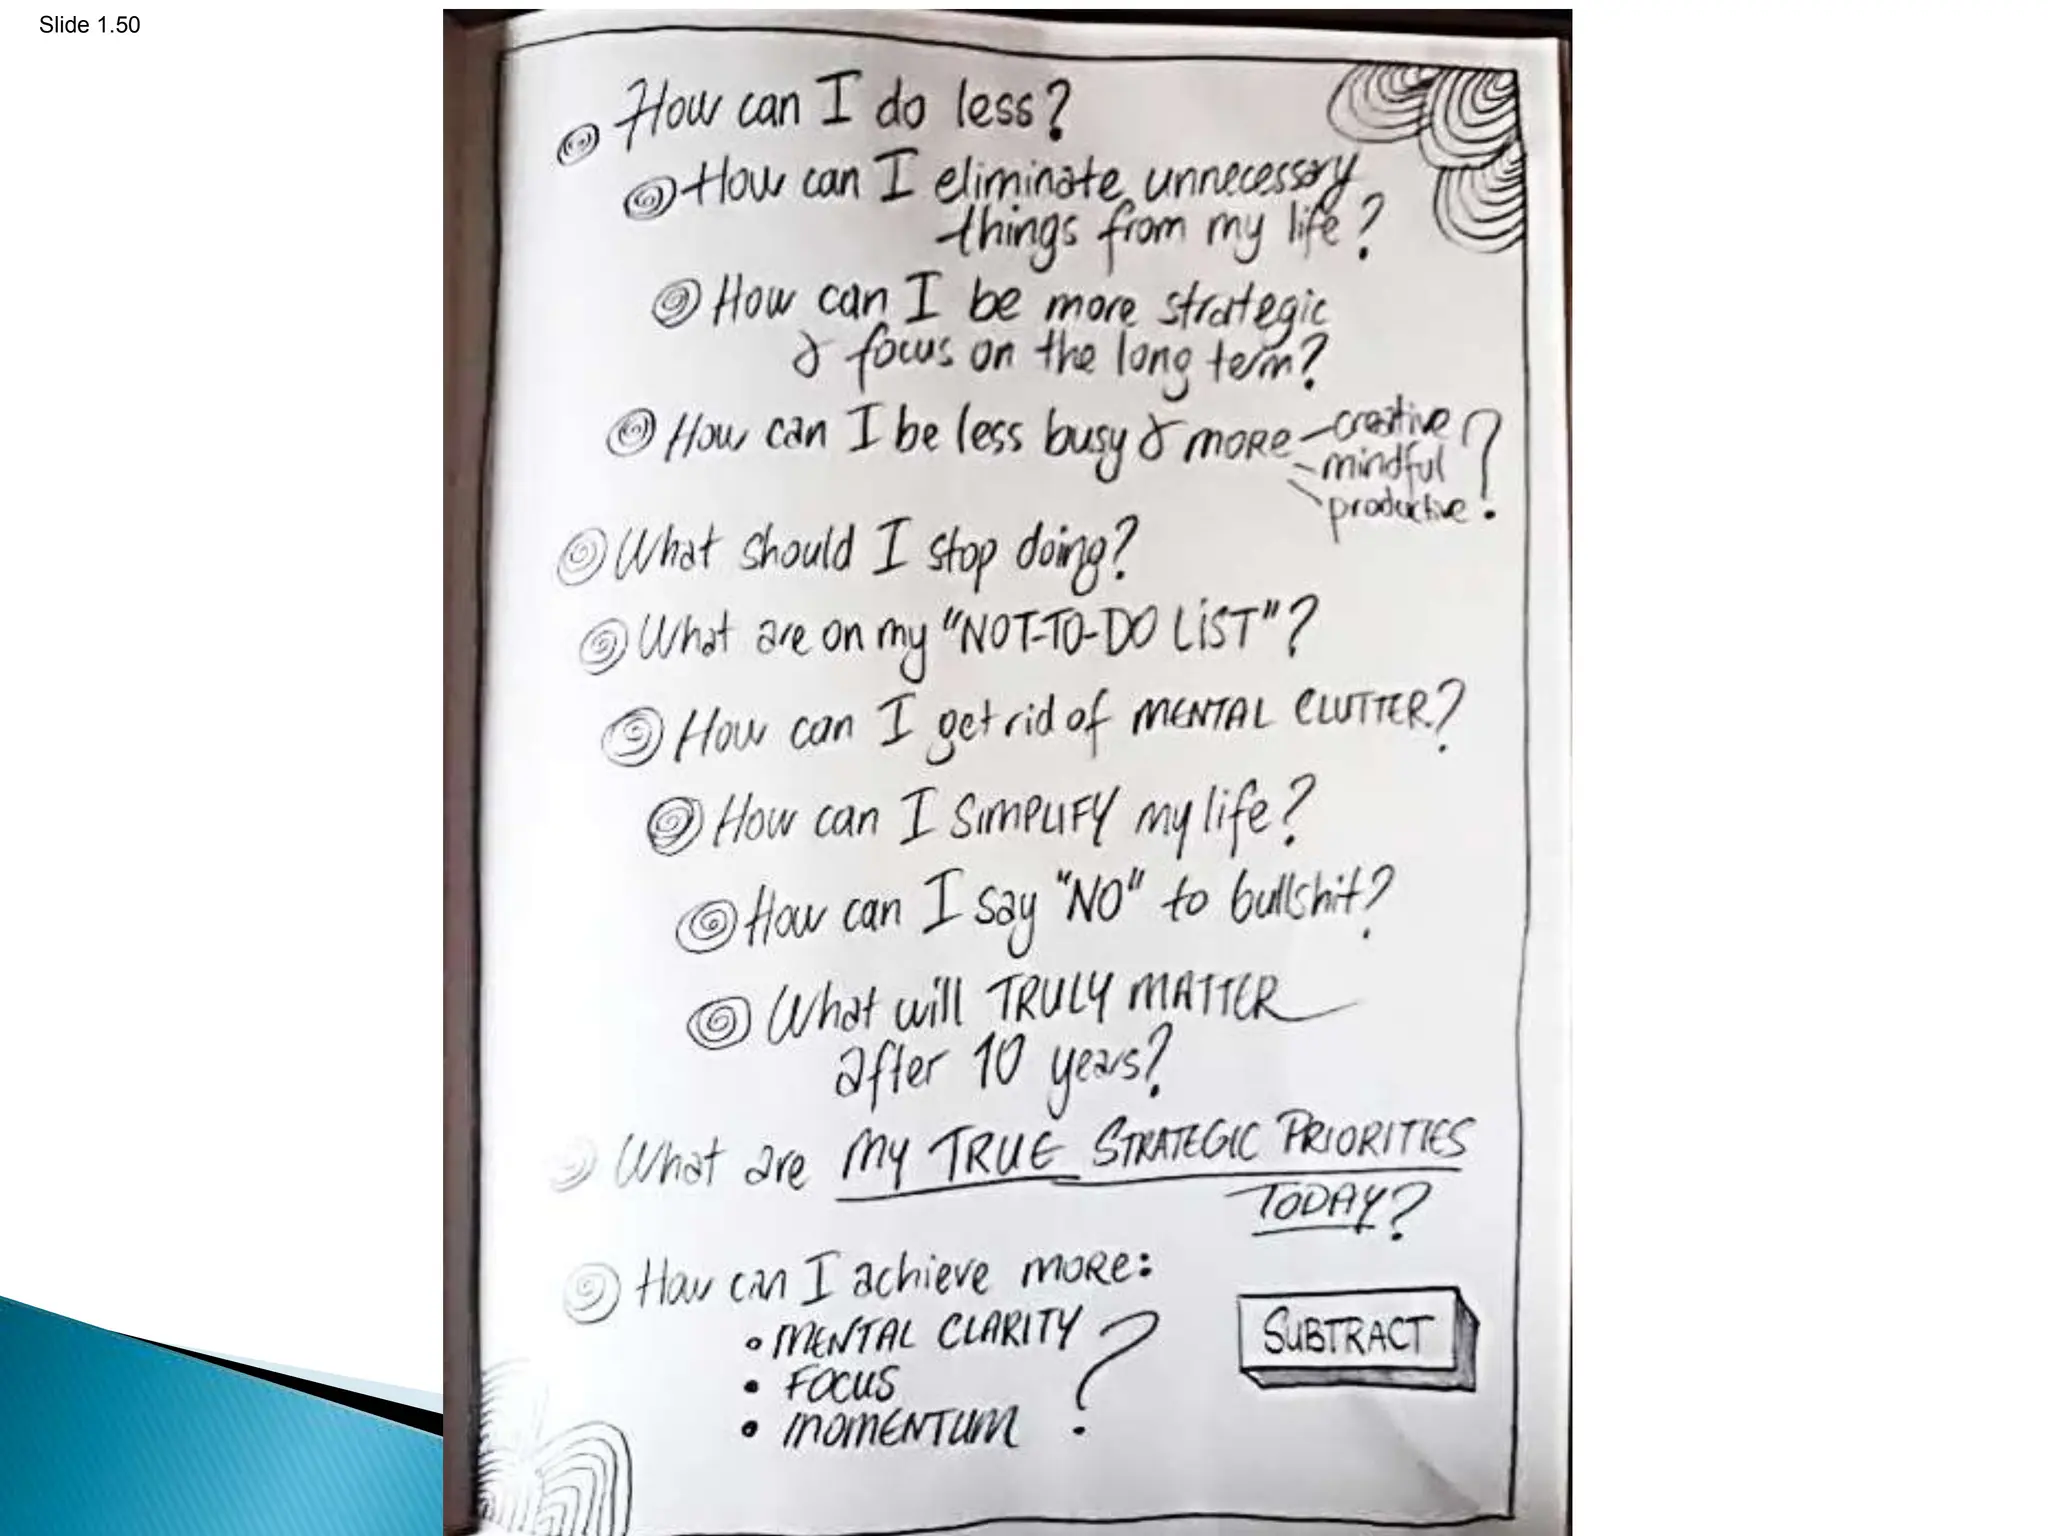 Slide 1.50
How can I do less?
How can I eliminate unnecessary
things from my life?
How can I be more strategic
& focus on the long term?
How can I be less busy & more creative
mindful
productive?
What should I stop doing?
What are on my "NOT-TO-DO LIST"?
How can I get rid of MENTAL CLUTTER?
How can I SIMPLIFY my life?
How can I say "NO" to bullshit?
What will TRULY MATTER
after 10 years?
What are MY TRUE STRATEGIC PRIORITIES
TODAY?
How can I achieve more:
• MENTAL CLARITY
• FOCUS
• MOMENTUM ?
SUBTRACT